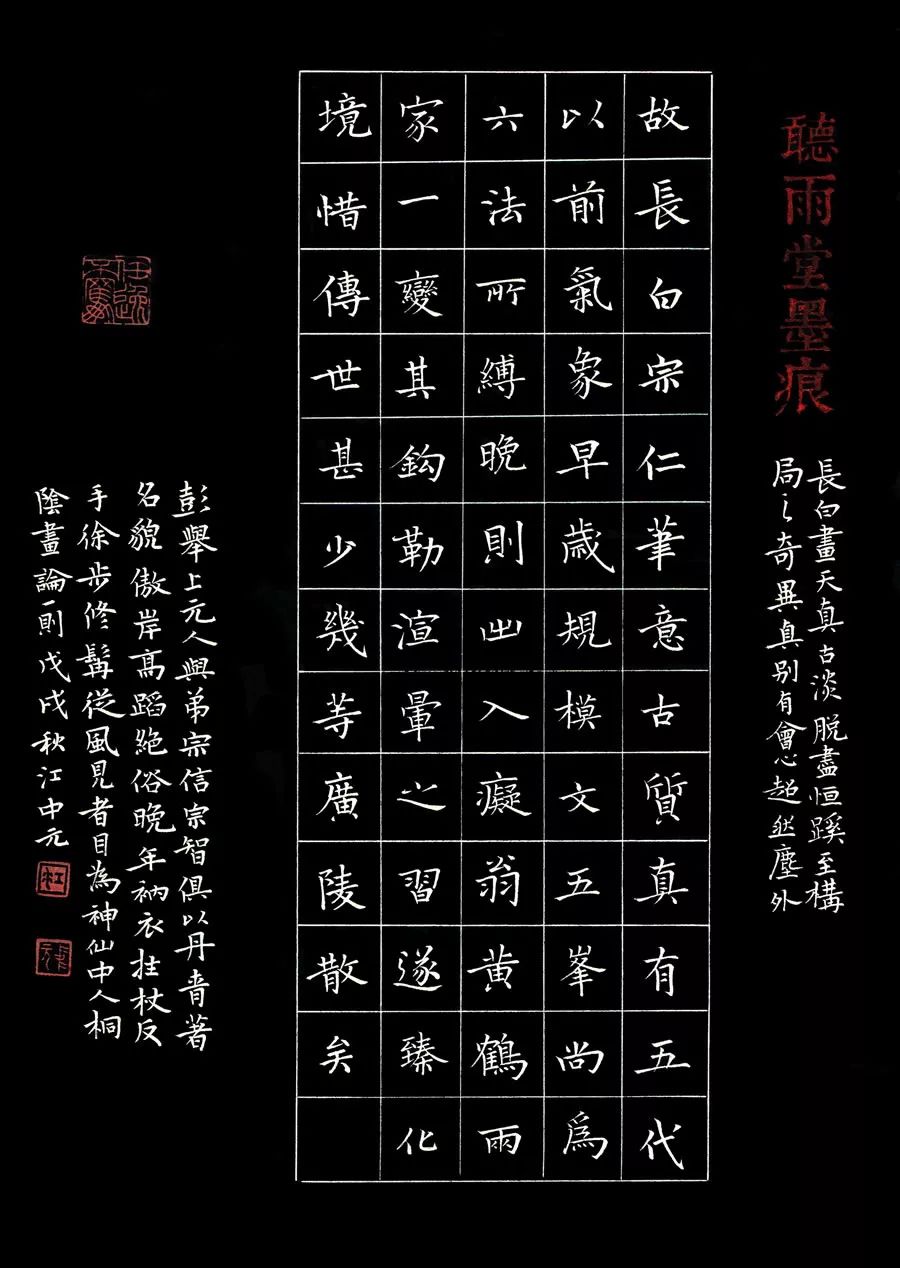 聽雨堂墨痕
長白畫天真古淡脫盡恒蹊至構
局之奇異真別有會心超然塵外
故長白宗仁筆意古質真有五代
以前氣象早歲規模文五峯尚為
六法所縛晚則出入癡翁黃鶴兩
家一變其鈎勒渲暈之習遂臻化
境惜傳世甚少幾等廣陵散矣
彭舉上元人與弟宗信宗智俱以丹青著
名貌傲岸高蹈絕俗晚年衲衣拄杖反
手徐步修髯從風見者目為神仙中人桐
陰畫論一則戊戌秋江中元
江